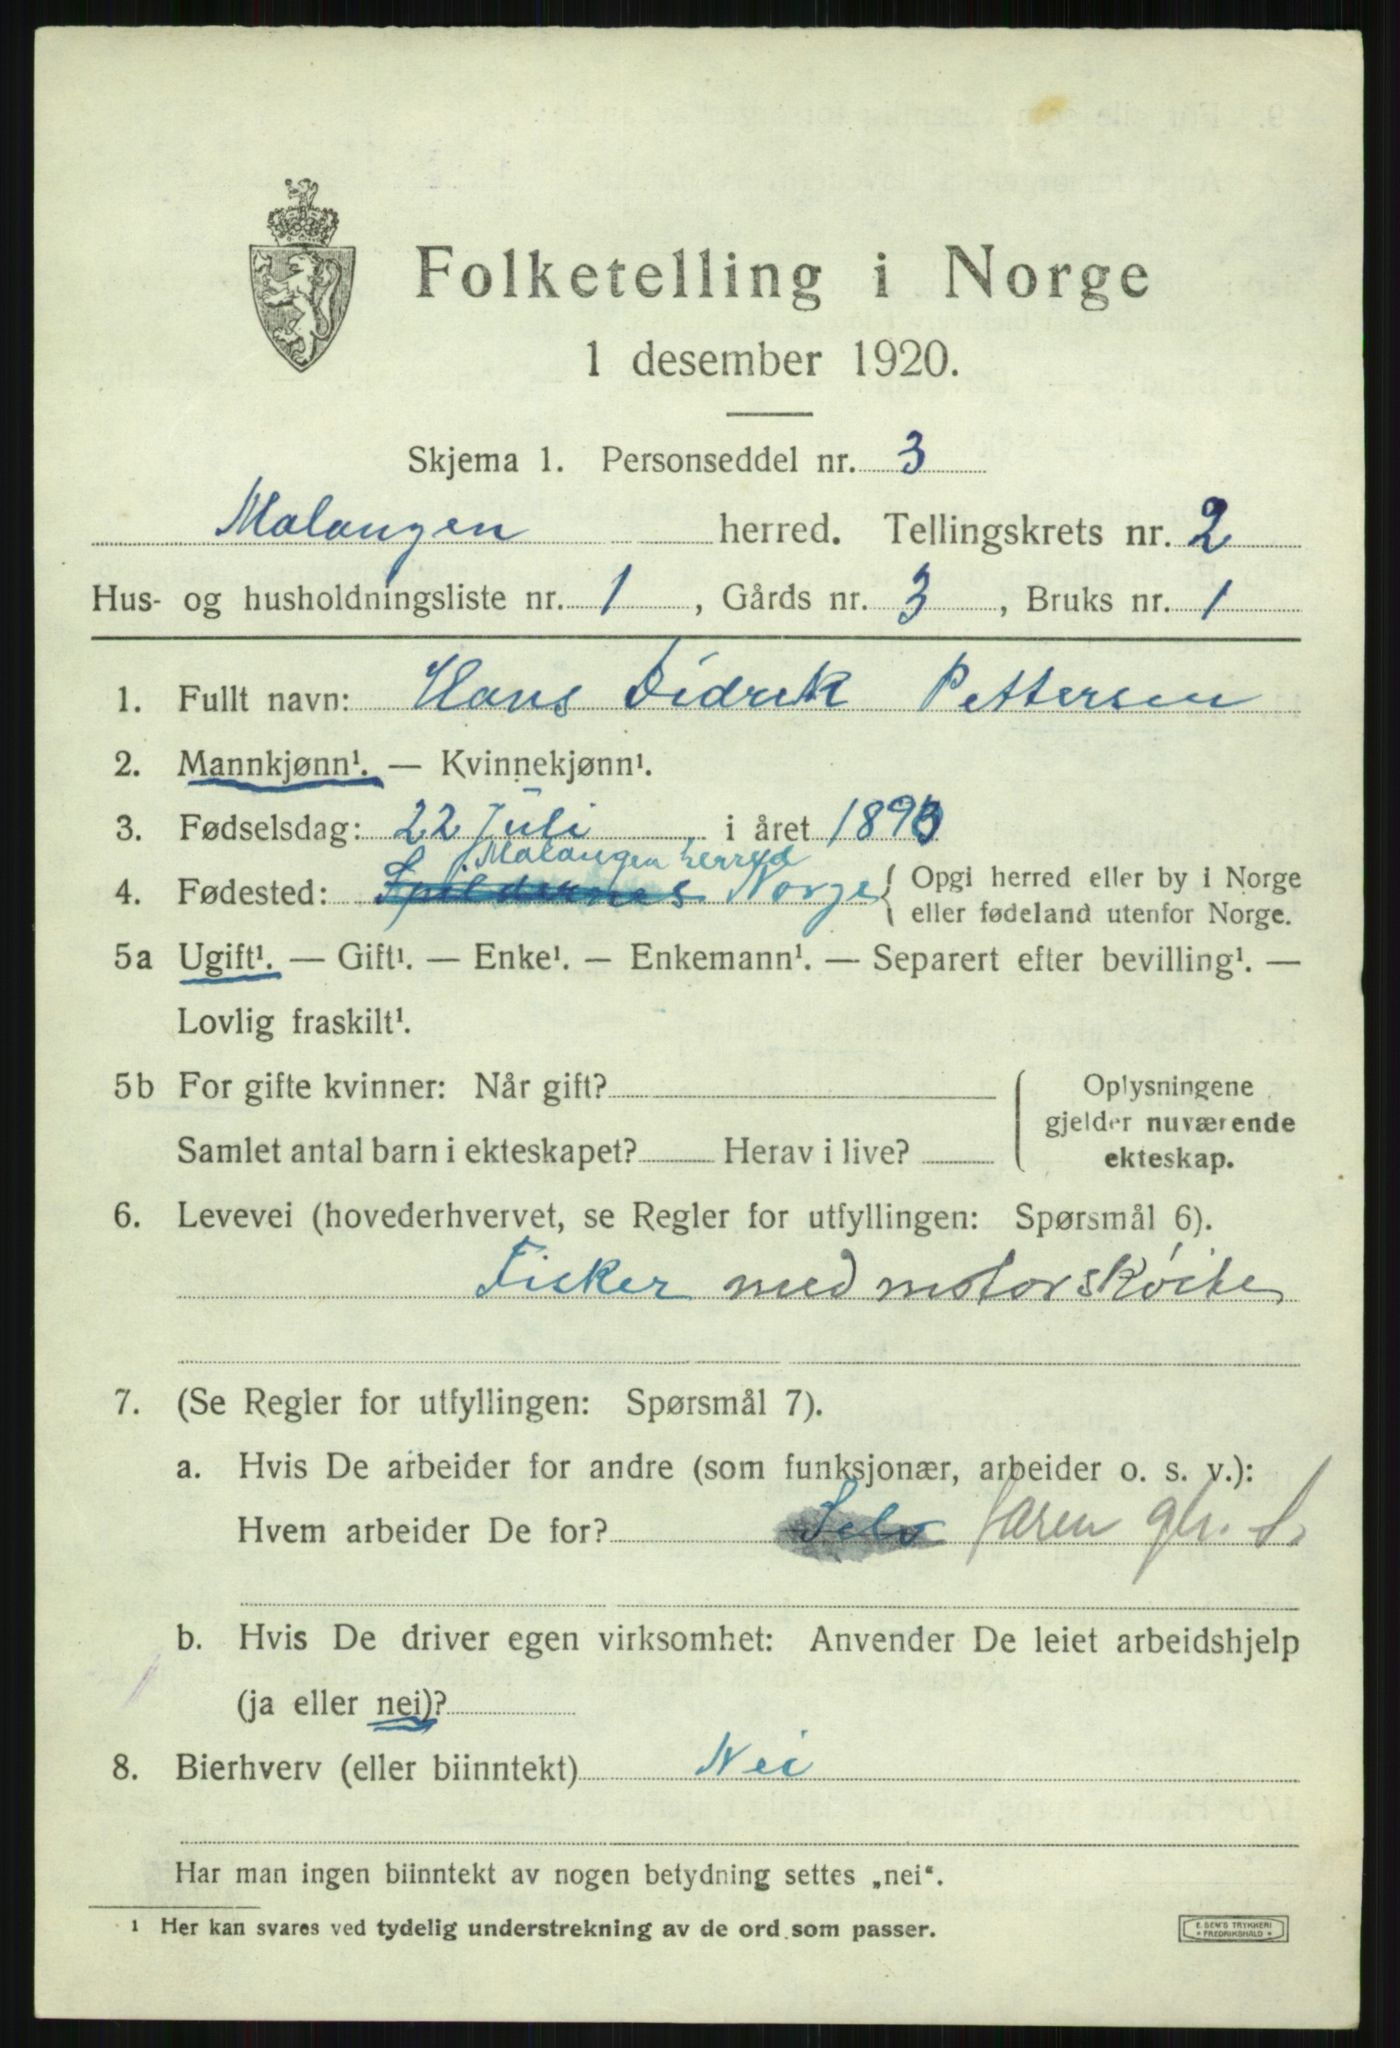 Folketelling i Norge
1 desember 1920.
Skjema 1. Personseddel nr. 3
Malangen herred. Tellingskrets nr. 2
Hus- og husholdningsliste nr. 1, Gårds nr. 3, Bruks nr. 1
1. Fullt navn: Hans Didrik Pettersen
2. Mannkjønn¹. — Kvinnekjønn¹.
3. Fødselsdag: 22 Juli i året
Malangen herred
4. Fødested: Spildernes Norge { Opgi herred eller by i Norge
eller fødeland utenfor Norge.
5a Ugift¹. — Gift¹. — Enke¹. — Enkemann¹. — Separert efter bevilling¹. —
Lovlig fraskilt¹.
5b For gifte kvinner: Når gift?
Samlet antal barn i ekteskapet? Herav i live?
Oplysningene
gjelder nuværende
ekteskap.
6. Levevei (hovederhvervet, se Regler for utfyllingen: Spørsmål 6).
Fisker med motorskøite
7. (Se Regler for utfyllingen: Spørsmål 7).
a. Hvis De arbeider for andre (som funksjonær, arbeider o. s. v.):
Hvem arbeider De for? Selv faren
b. Hvis De driver egen virksomhet: Anvender De leiet arbeidshjelp
(ja eller nei)?
8. Bierhverv (eller biinntekt) Nei
Har man ingen biinntekt av nogen betydning settes „nei“.
1 Her kan svares ved tydelig understrekning av de ord som passer.
E. SEM'S TRYKKERI
* FREDRIKSHALD *